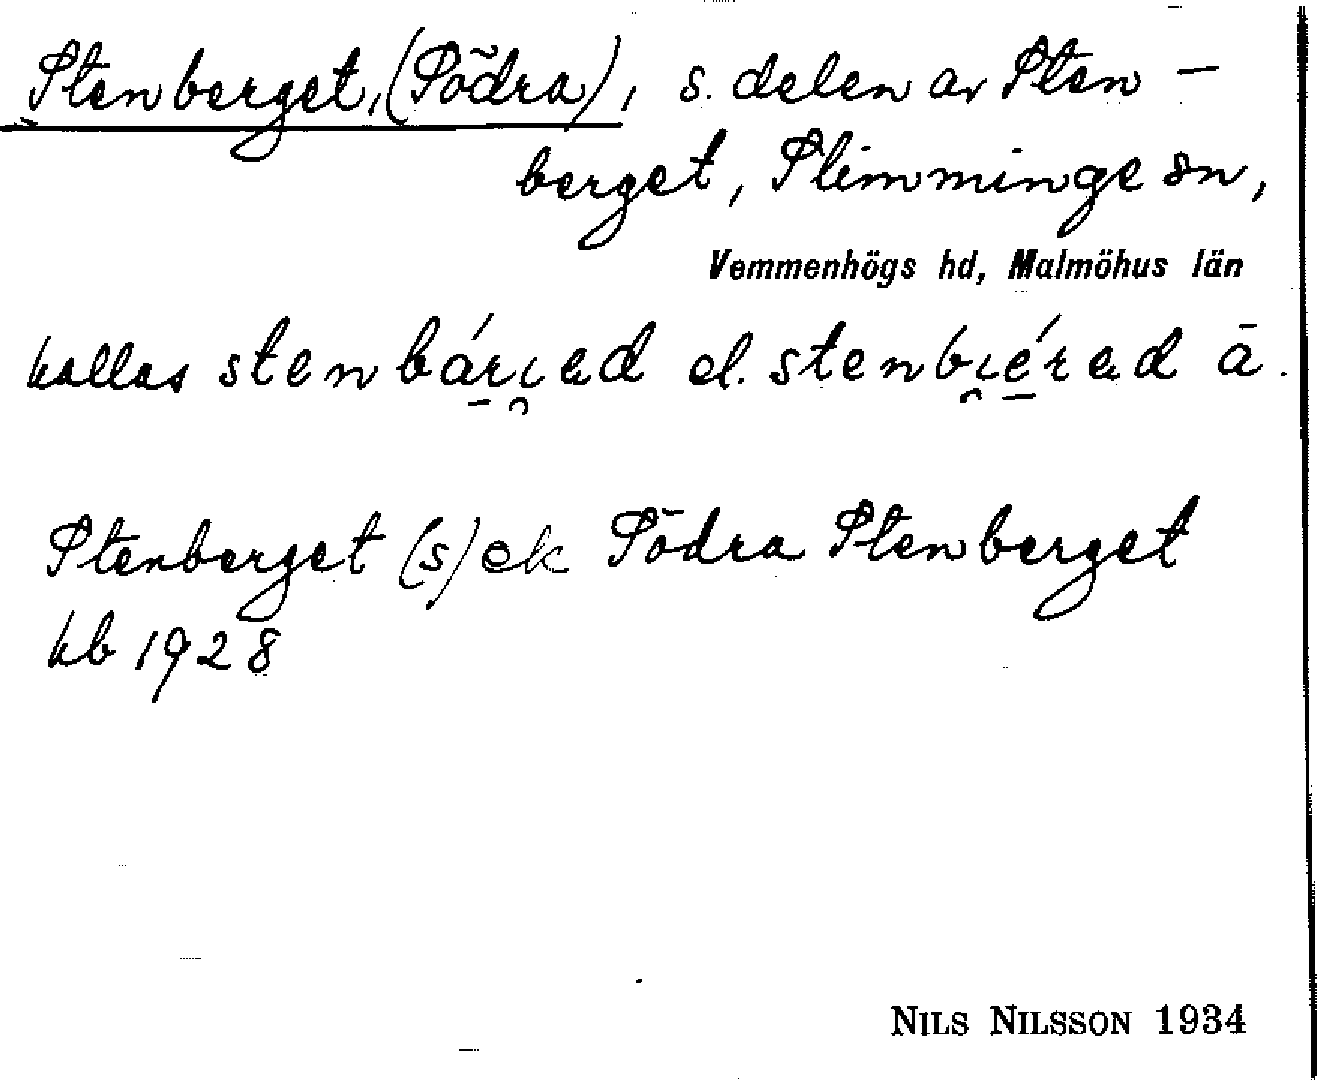 Stenberget, (Södra), s. delen av Sten-
berget, Slimminge sn,
Vemmenhögs hd, Malmöhus län
kallas stenbá̱ri̯ed el. stenbi̯é̱red ā.
Stenberget (s) ek Södra Stenberget
kb 1928
NILS NILSSON 1934